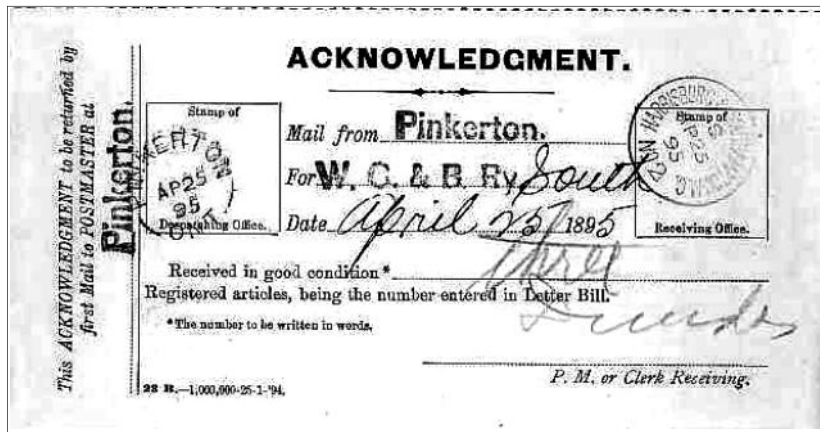 This ACKNOWLEDGMENT to be returned by
first Mail to POSTMASTER at
Pinkerton.
ACKNOWLEDGMENT.
Stamp of
PINKERTON
AP 25
95
ONT.
Despatching Office.
Mail from Pinkerton.
For W. G. & B. Ry South
Date April 25 1895
Stamp of
HARRISBURG
AP 25
95
Receiving Office.
Received in good condition* three
Registered articles, being the number entered in Letter Bill.
*The number to be written in words.
P. M. or Clerk Receiving.
23 B.—1,000,000-25-1-'94.